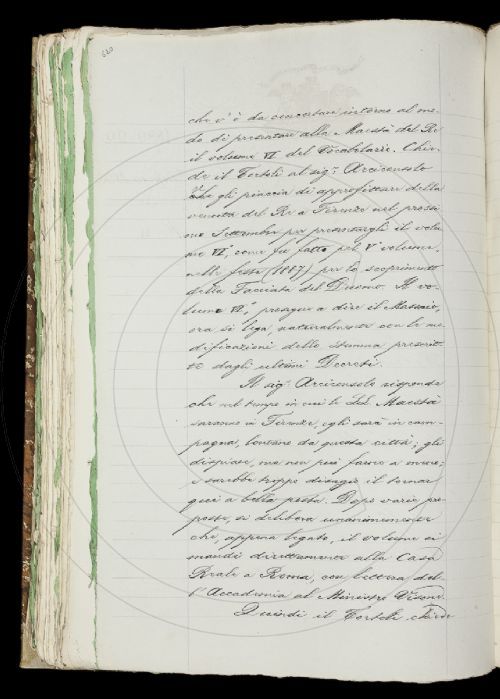 620
che v'è da concertare intorno al mo-
do di presentare alla Maestà del Re
il volume VI del Vocabolario. Chie-
de il Tortoli al sig.r Arciconsolo
che gli piaccia di approfittare della
venuta del Re a Firenze nel prossi-
mo Settembre per presentargli il volu-
me VI°, come fu fatto pel V° volume,
nelle feste (1887) per lo scoprimento
della Facciata del Duomo. Il vo-
lume VI°, prosegue a dire il Massaio,
ora si lega, naturalmente con le mo-
dificazioni dello stemma prescrit-
te dagli ultimi Decreti.
Il sig.r Arciconsolo risponde
che nel tempo in cui le LL. Maestà
saranno in Firenze, egli sarà in cam-
pagna, lontano da questa città; gli
dispiace, ma non può farne a meno;
e sarebbe troppo disagio il tornar
qui a bella posta. Dopo varie pro-
poste, si delibera unanimemente
che, appena legato, il volume si
mandi direttamente alla Casa
Reale a Roma, con lettera del-
l'Accademia al Ministro Visone.
Quindi il Tortoli chiede